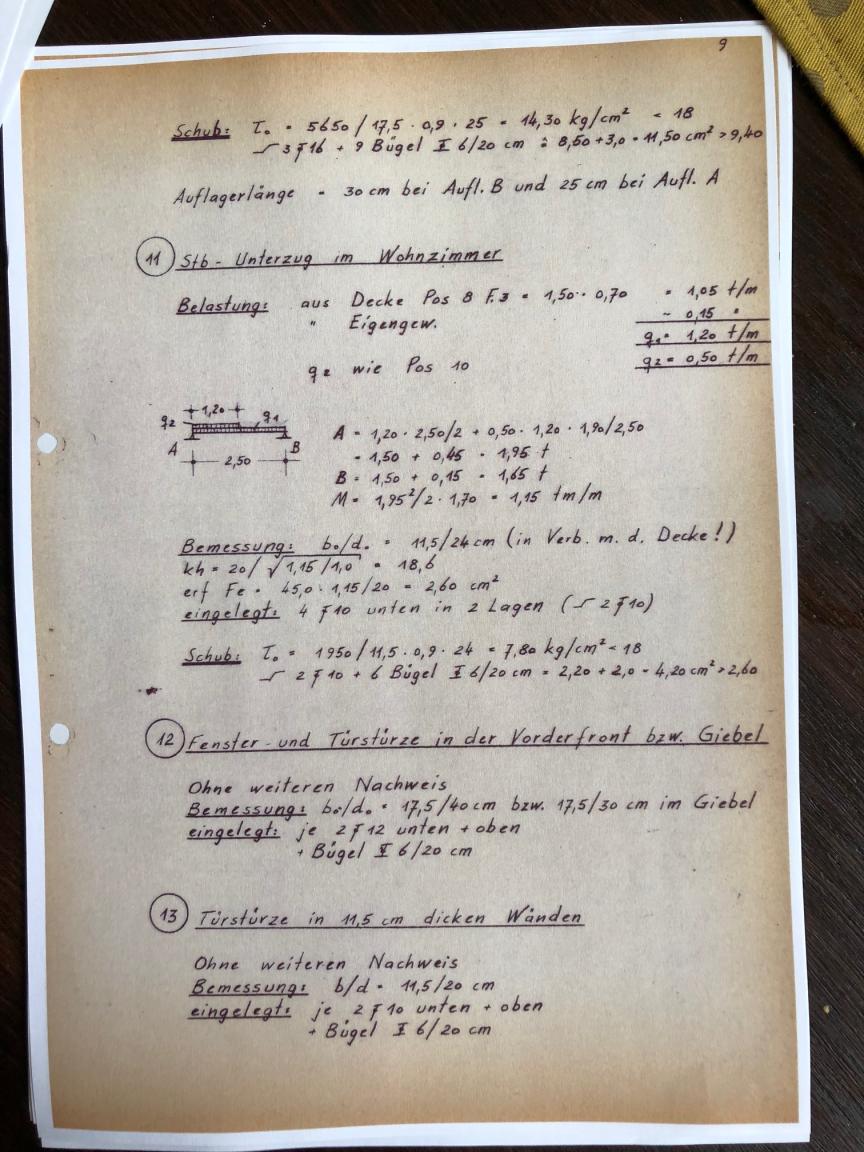 9
Schub: τ₀ = 5650 / 17,5 · 0,9 · 25 = 14,30 kg/cm² < 18
3 ∅ 16 + 9 Bügel I 6/20 cm ≙ 8,50 + 3,0 = 11,50 cm² > 9,40
Auflagerlänge = 30 cm bei Aufl. B und 25 cm bei Aufl. A
11 Stb - Unterzug im Wohnzimmer
Belastung: aus Decke Pos 8 F. 3 = 1,50 · 0,70 = 1,05 t/m
" Eigengew. ~ 0,15 "
q₁ = 1,20 t/m
q₂ wie Pos 10 q₂ = 0,50 t/m
1,20
q₂ q₁
A B
2,50
A = 1,20 · 2,50/2 + 0,50 · 1,20 · 1,90/2,50
= 1,50 + 0,45 = 1,95 t
B = 1,50 + 0,15 = 1,65 t
M = 1,95²/2 · 1,70 = 1,15 tm/m
Bemessung: b₀/d₀ = 11,5/24 cm (in Verb. m. d. Decke!)
kh = 20/ √1,15/1,0 = 18,6
erf Fe = 45,0 · 1,15/20 = 2,60 cm²
eingelegt: 4 ∅ 10 unten in 2 Lagen ( 2 ∅ 10)
Schub: τ₀ = 1950 / 11,5 · 0,9 · 24 = 7,80 kg/cm² < 18
2 ∅ 10 + 6 Bügel I 6/20 cm = 2,20 + 2,0 = 4,20 cm² > 2,60
12 Fenster - und Türstürze in der Vorderfront bzw. Giebel
Ohne weiteren Nachweis
Bemessung: b₀/d₀ = 17,5/40 cm bzw. 17,5/30 cm im Giebel
eingelegt: je 2 ∅ 12 unten + oben
+ Bügel I 6/20 cm
13 Türstürze in 11,5 cm dicken Wänden
Ohne weiteren Nachweis
Bemessung: b/d = 11,5/20 cm
eingelegt: je 2 ∅ 10 unten + oben
+ Bügel I 6/20 cm